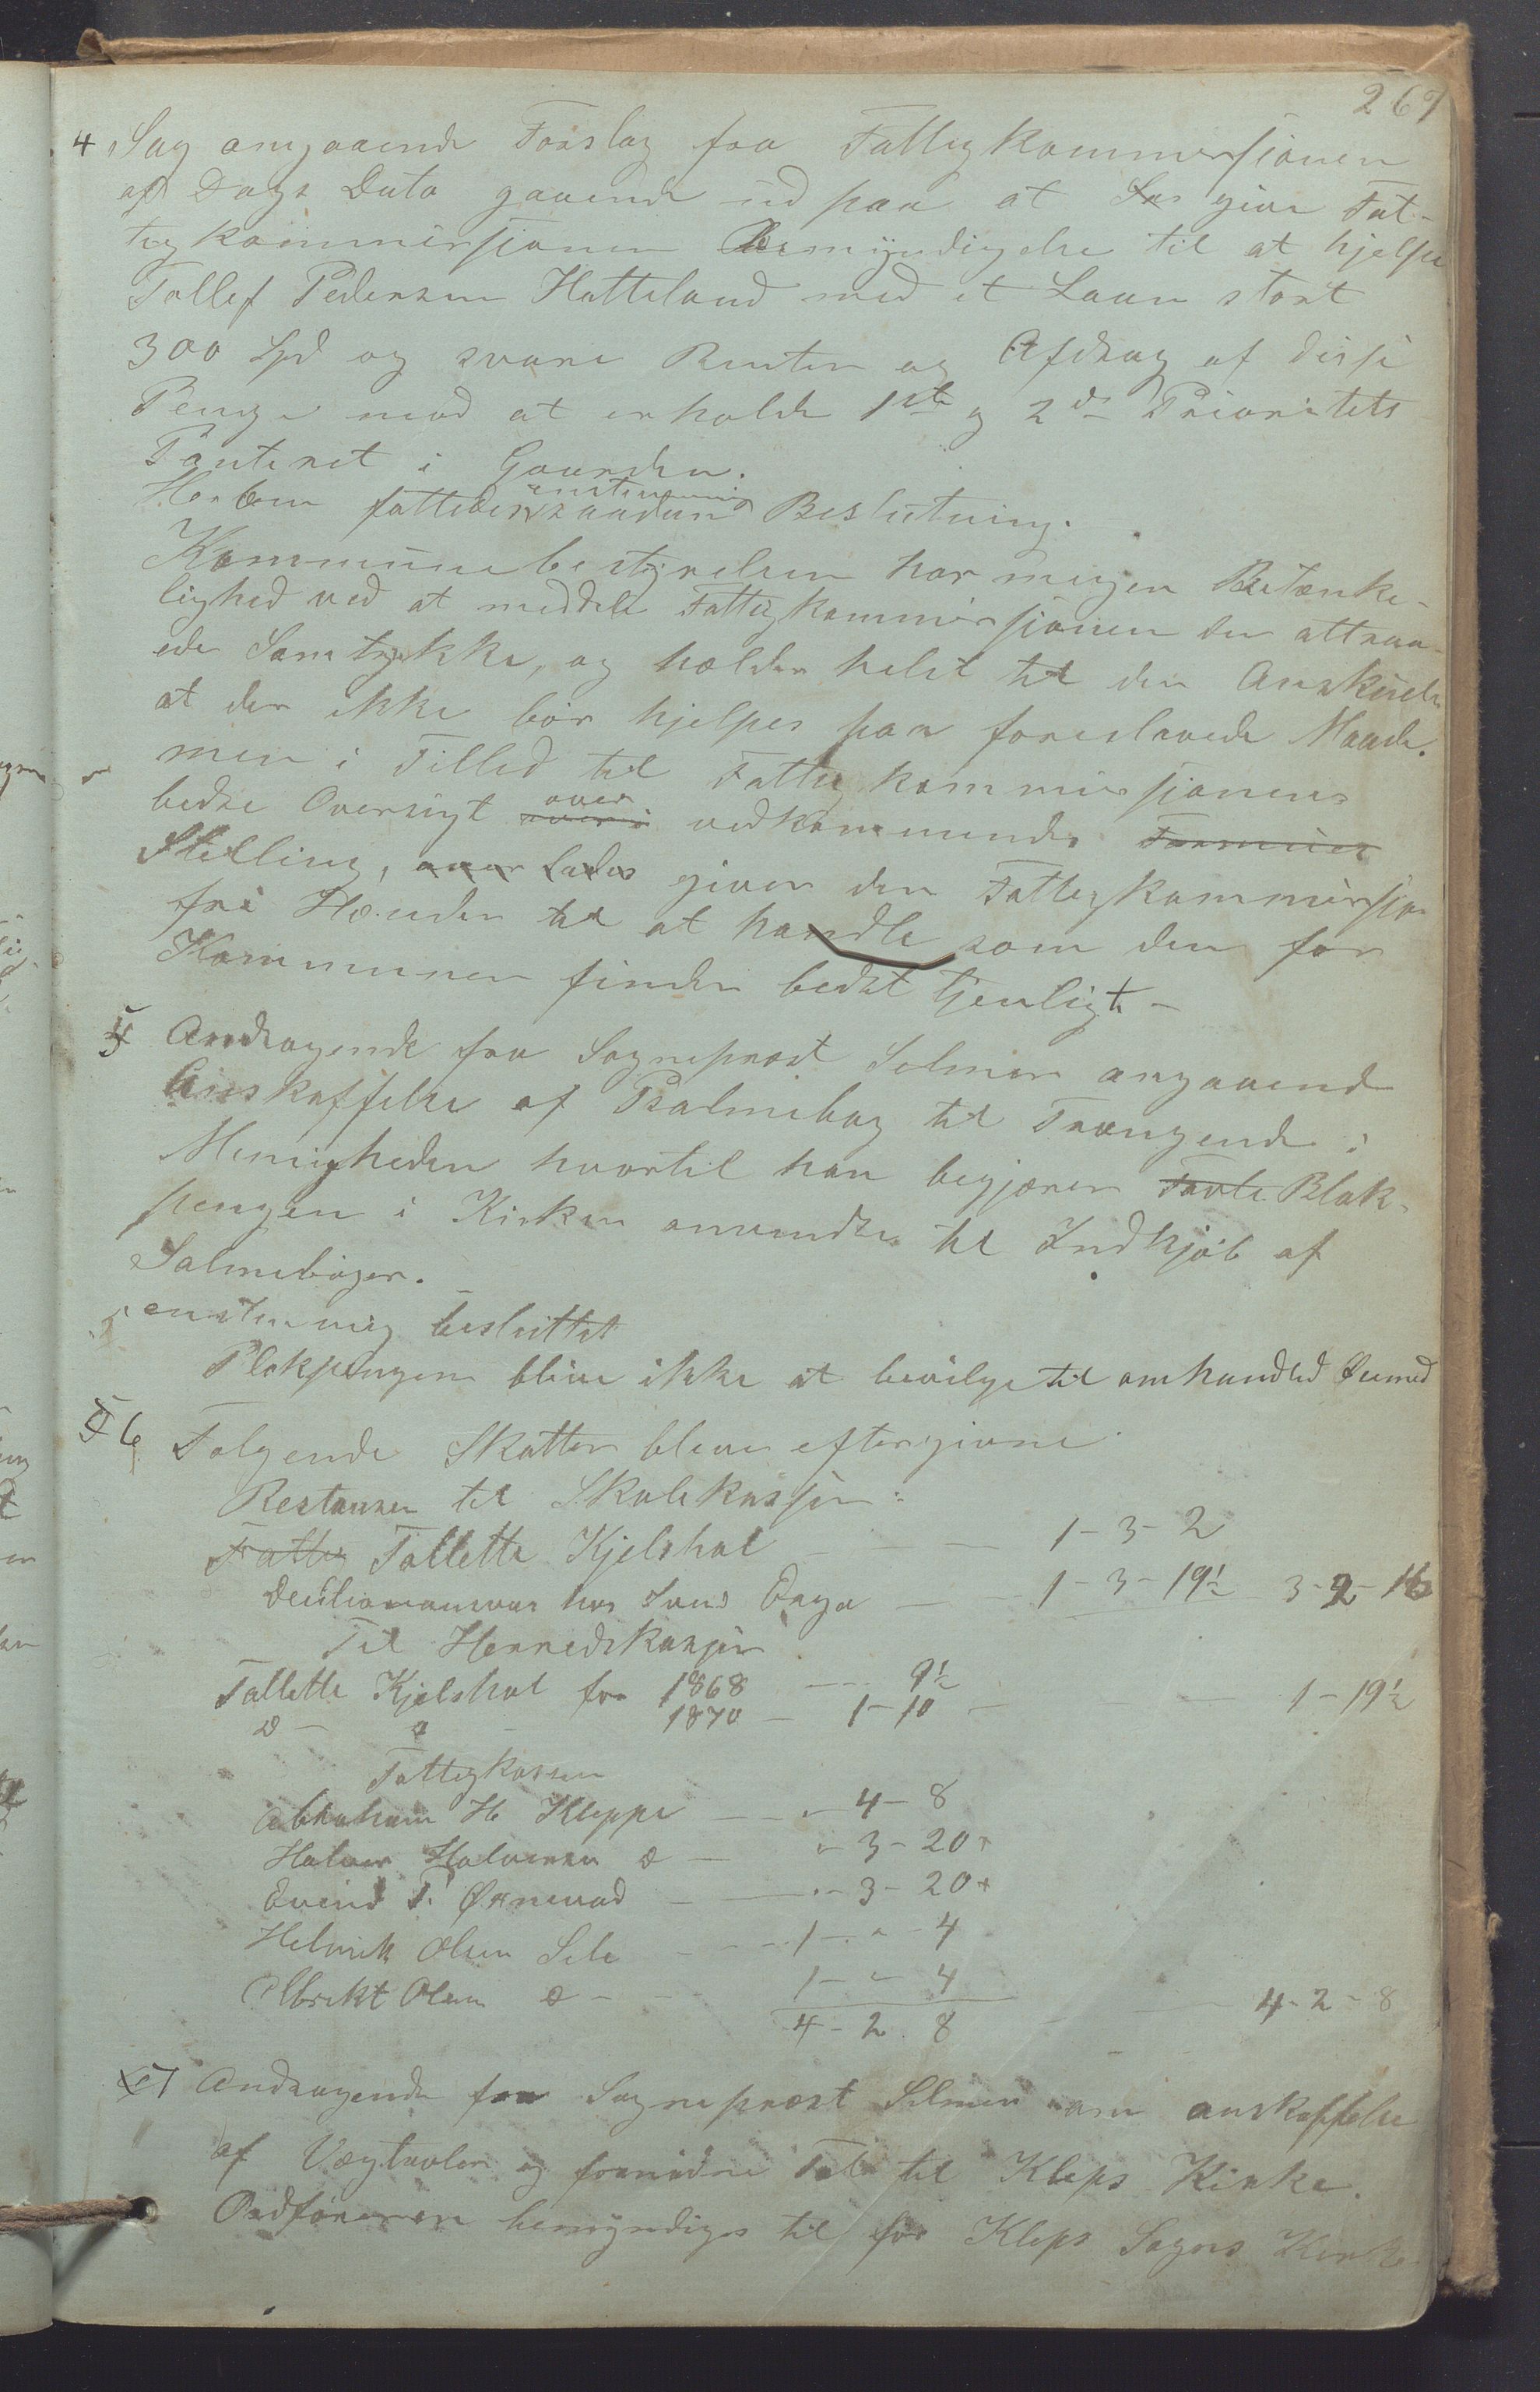 267
4 Sag angaaende Forslag fra Fattigkommissjonen
af Dags Dato gaaende ud paa at give Fat-
tigkommissjonen Bemyndigelse til at hjelpe
Tollef Pedersen Hatteland med et Laan stort
300 Spd og svare Renter og Afdrag af disse
Penge mod at erholde 1ste og 2den Prioritets
Panteret i Gaarden.
Herom fattedes enstemmig saadan Beslutning.
Kommunebestyrelsen har megen Betænke-
lighed ved at meddele Fattigkommissjonen den attraa-
ede Samtykke, og hælder helst til den Anskuelse
at der ikke bør hjelpes paa foreslavede Maade.
men i Tillid til Fattigkommissjonens
bedre Oversigt over vedkommendes
Stilling, over lades giver den Fattigkommissjon
fri Hænder til at handle som den for
Kommunen finder bedst tjenligt –
5 Andragende fra Sogneprest Selmer angaaende
Anskaffelse af Psalmebog til Trængende i
Menigheden hvortil han begjærer Tavle Blok-
pengen i Kirken anvendte til Indkjøb af
Salmebøger.
enstemmig besluttet
Blokpengene blive ikke at bevilge til omhandled Øiemed
6 Følgende Skatter bleve eftergivne
Restanser til Skolekassen:
Fattig Tollette Kjelshal – – – 1-3-2
hos Orga – – 1-3-19½ 3-2-16
Til Herredskassen
Tollette Kjelshal fra 1868 – – 9½
D – D – 1870 – 1-10 – – – 1-19½
Fattigkassen
Abraham H. Kleppe – – 4-8
Halvor Halvorsen D – – 3-20
Evind T. Øxnevad – – 3-20
Helmik Olsen Sele – – 1 - " - 4
Albrekt Olsen D – – 1 - " 4
4-2-8 – – 4-2-8
7 Andragende fra Sogneprest Selmer om anskaffelse
af Vægtavler og fornødne Tal til Kleps Kirke.
Ordføreren bemyndiges til for Kleps Sogns Kirke